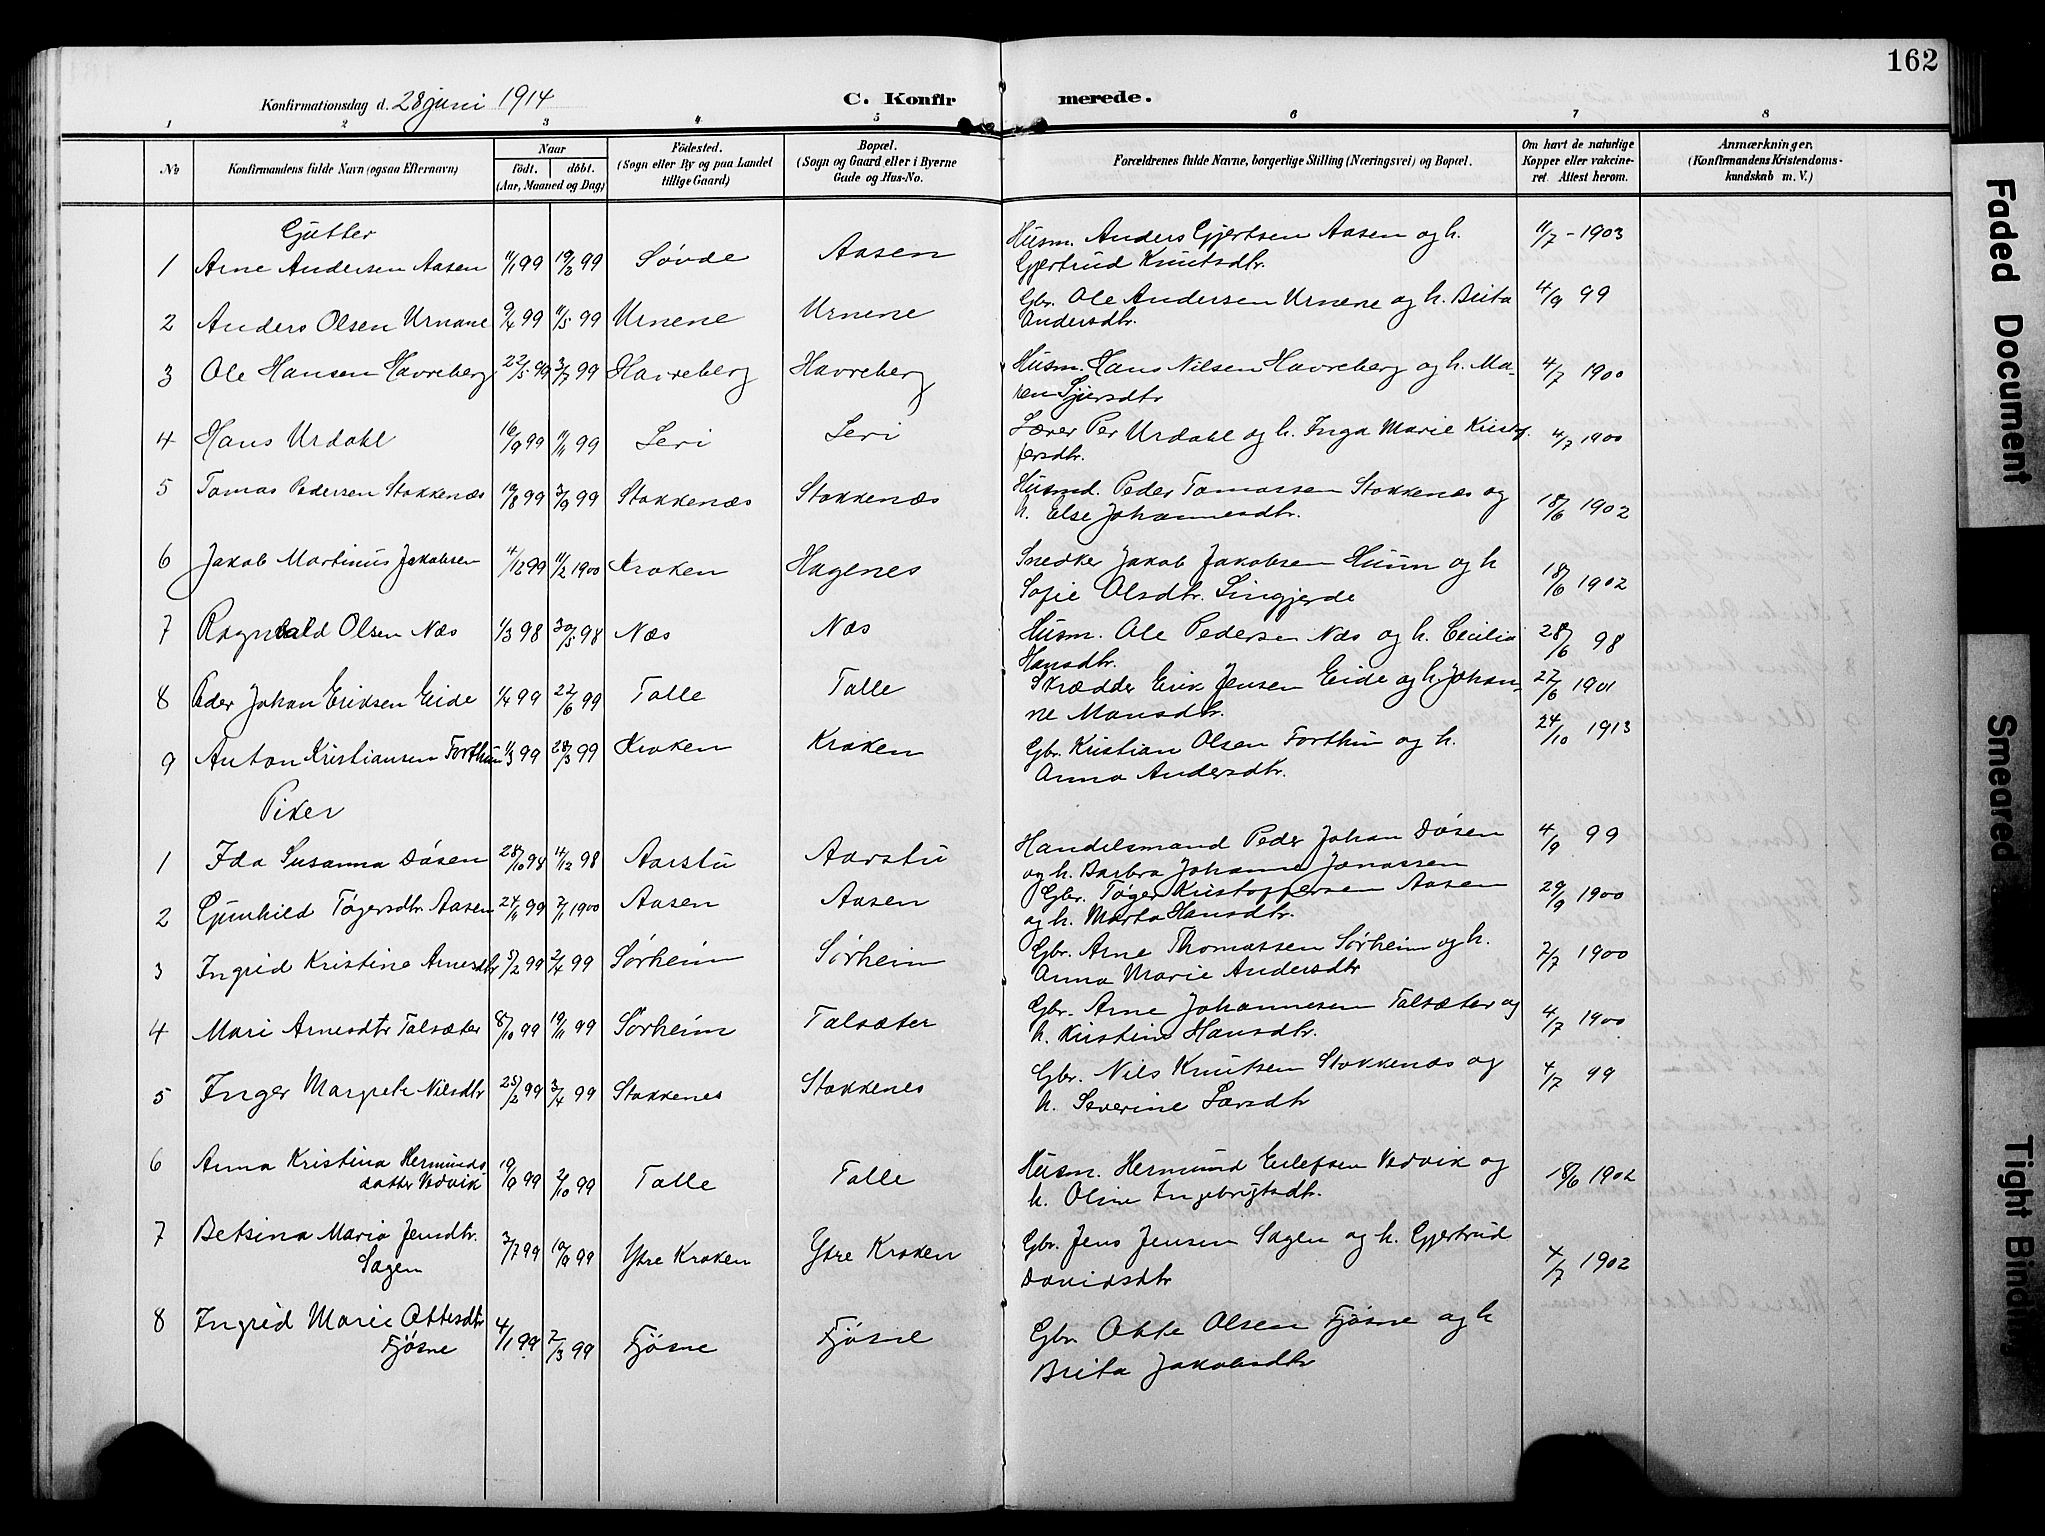 162
Konfirmationsdag d. 28 juni 1914 C. Konfirmerede.
1 2 3 4 5 6 7 8
No. Konfirmandens fulde Navn (ogsaa Efternavn) Naar født. døbt. (Aar, Maaned og Dag) Fødested. (Sogn eller By og paa Landet tillige Gaard) Bopæl. (Sogn og Gaard eller i Byerne Gade og Hus-No. Forældrenes fulde Navne, borgerlige Stilling (Næringsvei) og Bopæl. Om havt de naturlige Kopper eller vakcineret. Attest herom. Anmærkninger. (Konfirmandens Kristendomskundskab m. V.)
Gutter
1 Arne Andersen Aasen 11/1 99 19/3 99 Søvde Aasen Husm. Anders Gjertsen Aasen og h. 11/7 - 1903
Gjertrud Knutsdtr.
2 Anders Olsen Urnæne 9/4 99 11/5 99 Urnene Urnene Gbr. Ole Andersen Urnene og h. Brita 4/9 99
Andersdtr.
3 Ole Hansen Havreberg 22/5 99 3/7 99 Havreberg Havreberg Husm. Hans Nilsen Havreberg og h. Ma- 4/7 1900
ren Sjursdtr
4 Hans Urdahl 16/9 99 11/11 99 Leri Leri Lærer Per Urdahl og h. Inga Marie Kristof- 4/7 1900
fersdtr.
5 Tomas Pedersen Stokkenæs 19/8 99 3/9 99 Stokkenæs Stokkenæs Husmd. Peder Tomassen Stokkenæs og 18/6 1902
h. Else Johannesdtr.
6 Jakob Martinus Jakobsen 4/12 99 11/2 1900 Kroken Hagenes Snedker Jakob Jakobsen Huum og h 18/6 1902
Sofie Olsdtr. Lingjerde
7 Ragnvald Olsen Næs 1/3 98 30/5 98 Næs Næs Husm. Ole Pedersen Næs og h. Cecilia 28/6 98
Hansdtr.
8 Peder Johan Eriksen Eide 1/4 99 22/6 99 Talle Talle Skrædder Erik Jensen Eide og h. Johan- 27/6 1901
ne Monsdtr.
9 Anton Kristiansen Forthun 1/3 99 28/3 99 Kroken Kroken Gbr. Kristian Olsen Forthun og h. 24/10 1913
Anna Andersdtr.
Piker
1 Ida Susanna Døsen 28/10 98 14/12 98 Aarstu Aarstu Handelsmand Peder Johan Døsen 4/9 99
og h. Barbra Johanne Jonassen
2 Gunhild Tøgersdtr Aasen 24/11 99 7/1 1900 Aasen Aasen Gbr. Tøger Kristoffersen Aasen 29/9 1900
og h. Marta Hansdtr.
3 Ingrid Kristine Arnesdtr 5/2 99 2/4 99 Sørheim Sørheim Gbr. Arne Thomassen Sørheim og h. 7/7 1900
Anna Marie Andersdtr
4 Mari Arnesdtr Talsæter 8/10 99 19/11 99 Sørheim Talsæter Gbr. Arne Johannesen Talsæter og 4/7 1900
h. Kristine Hansdtr.
5 Inger Margrete Nilsdtr 25/2 99 3/4 99 Stokkenes Stokkenes Gbr. Nils Knutsen Stokkenæs og 4/7 99
h. Severine Larsdtr
6 Anna Kristina Hermunds- 19/9 99 2/10 99 Talle Talle Husm. Hermund Eilefsen Vedvik og 18/6 1902
datter Vedvik h. Oline Ingebrigtsdtr.
7 Betsina Maria Jensdtr. 3/7 99 10/9 99 Ytre Kroken Ytre Kroken Gbr. Jens Jensen Sagen og h. Gjertrud 4/7 1902
Sagen Davidsdtr
8 Ingrid Marie Ottesdtr 4/1 99 7/3 99 Fjøsne Fjøsne Gbr. Otte Olsen Fjøsne og h
Fjøsne Brita Jakobsdtr
Faded Document
Smeared
Tight Binding